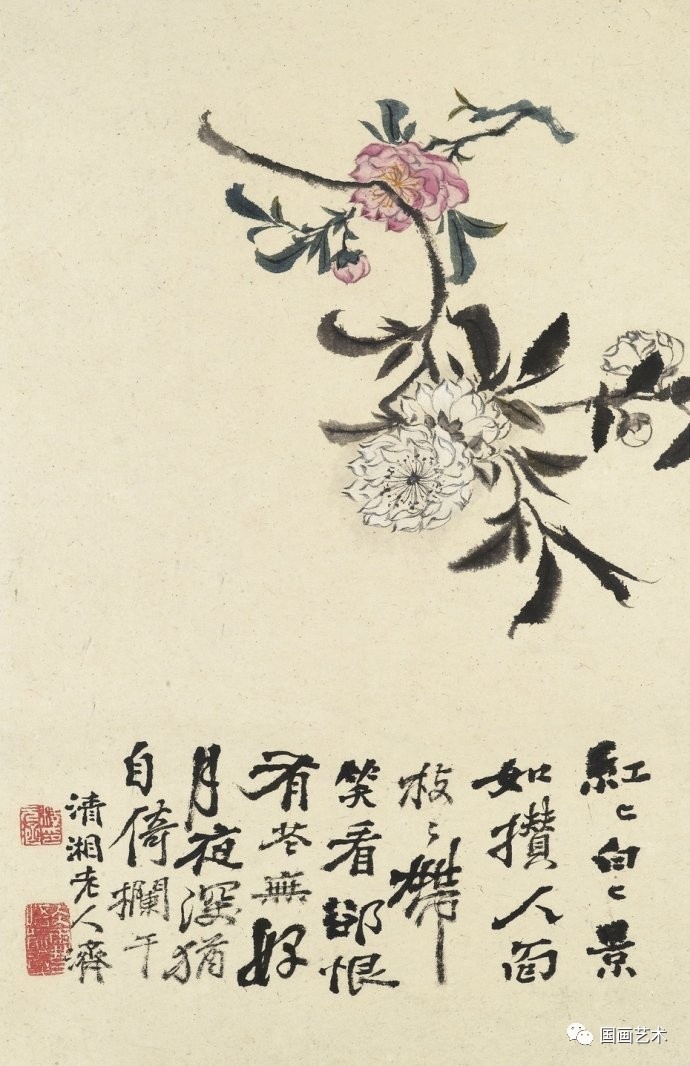 紅〻白〻景
如攢人面
枝〻攤
笑看郤恨
有花無好
月夜深猶
自倚欄干
清湘老人濟
国画艺术